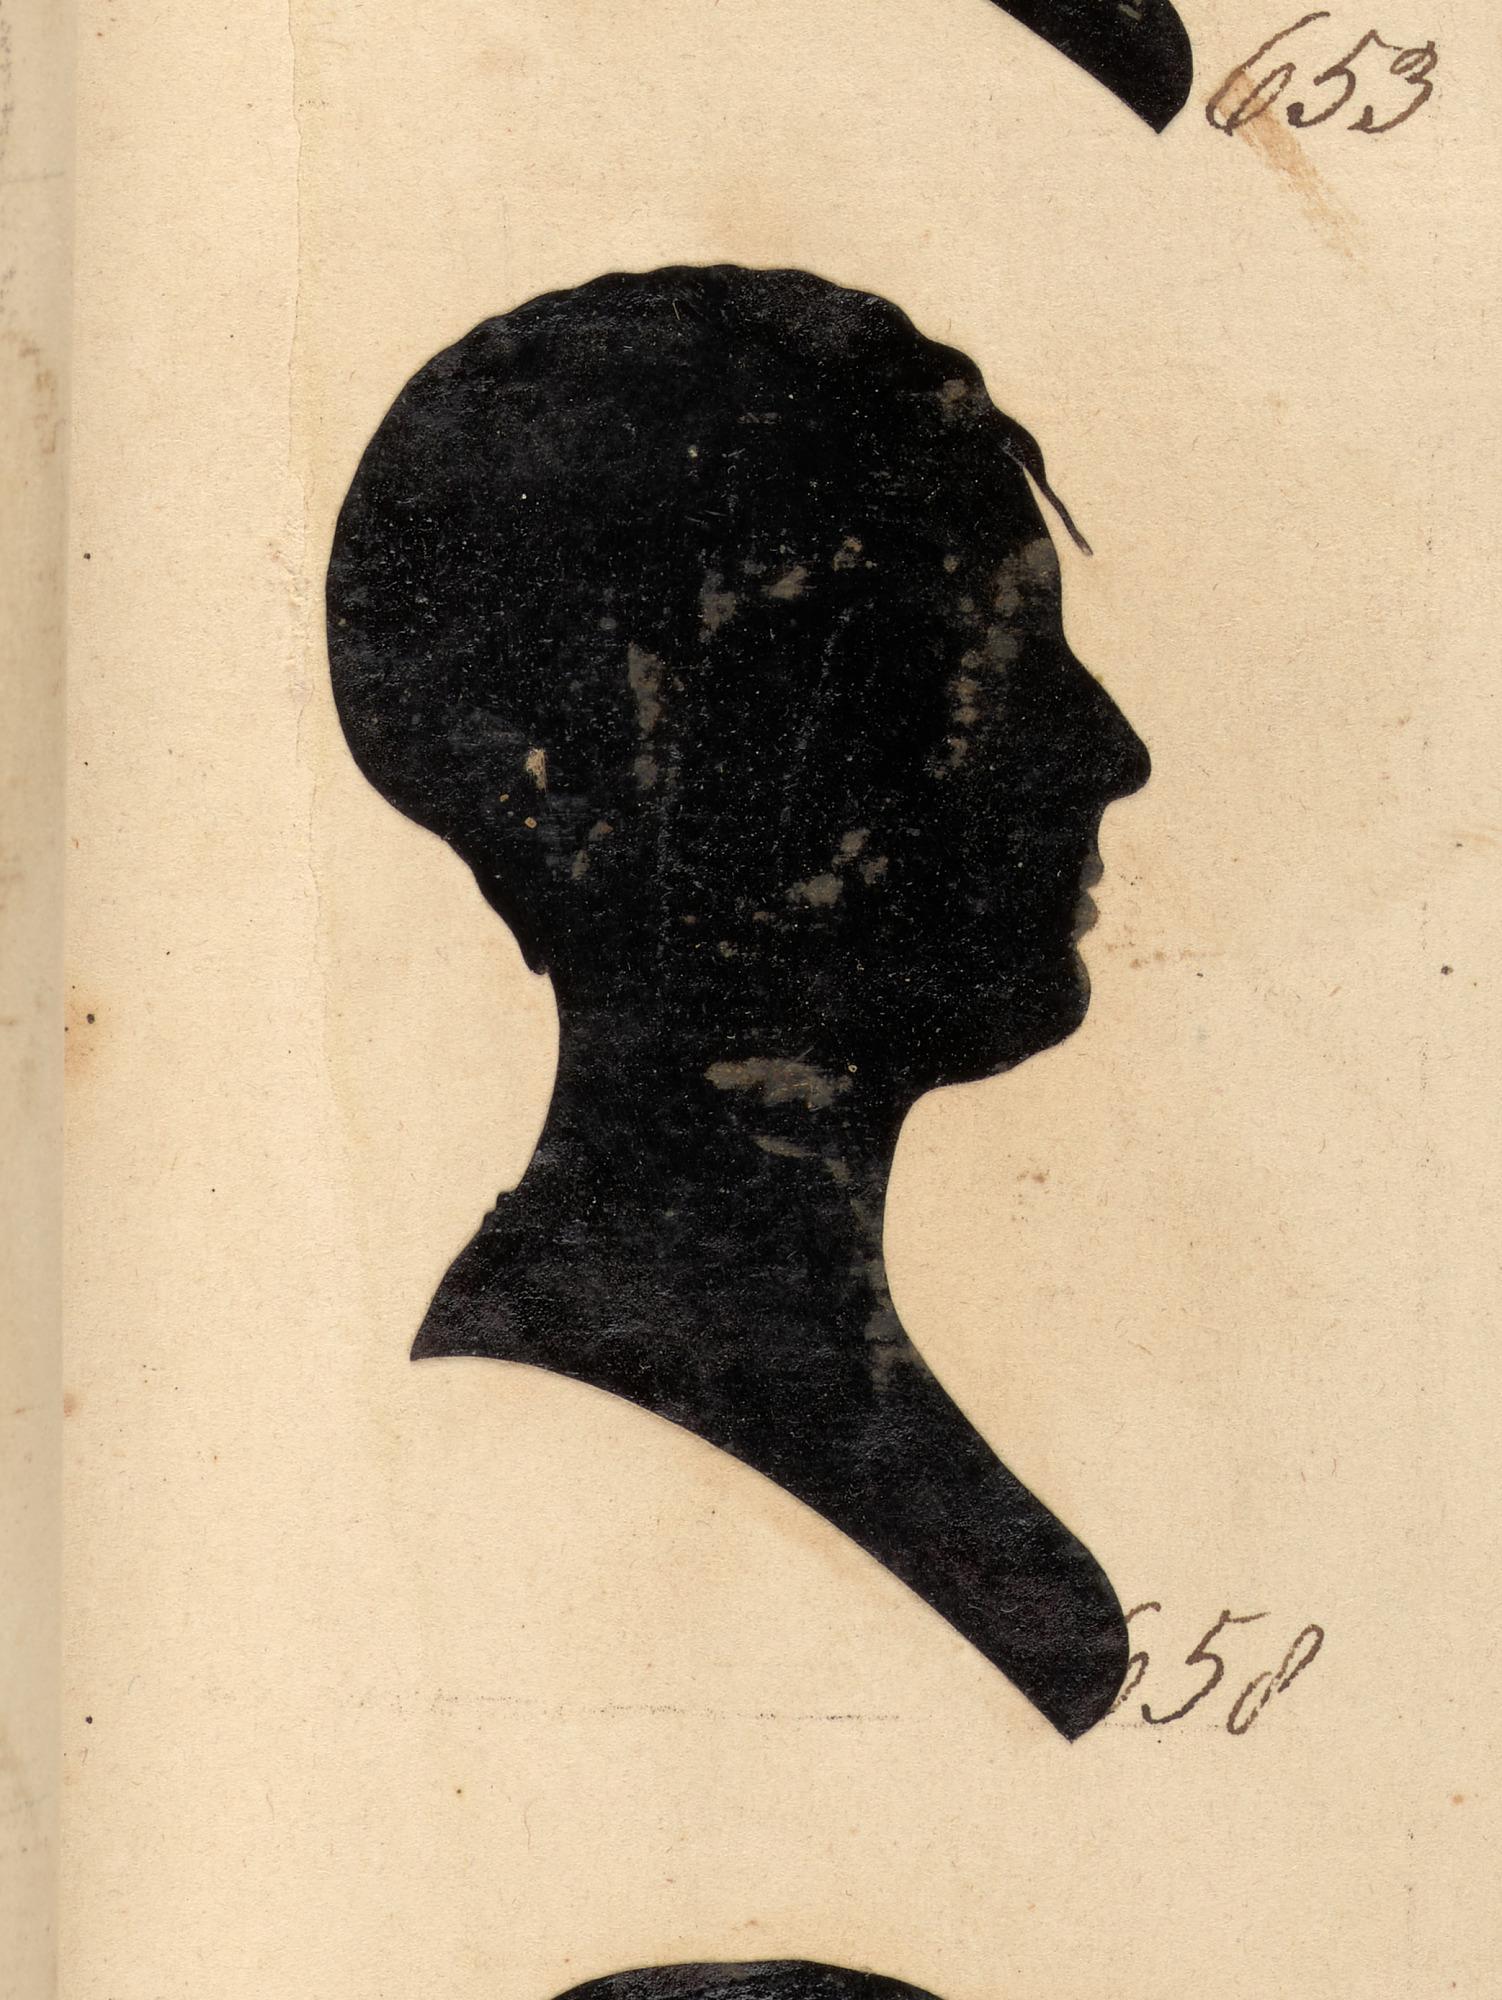 653
658